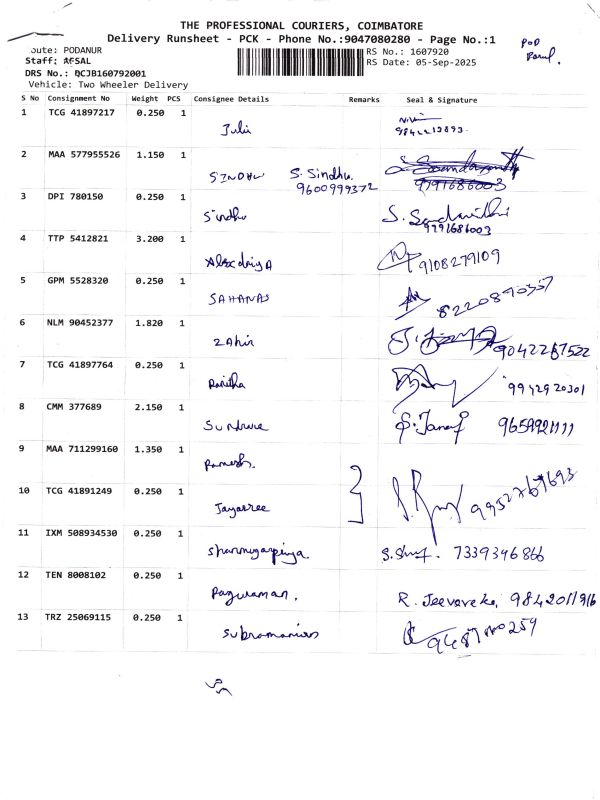 THE PROFESSIONAL COURIERS, COIMBATORE
Delivery Runsheet - PCK - Phone No.:9047080280 - Page No.:1
POD
oute: PODANUR RS No.: 1607920
Staff: AFSAL RS Date: 05-Sep-2025
DRS No.: DCJB160792001
Vehicle: Two Wheeler Delivery
S No Consignment No Weight PCS Consignee Details Remarks Seal & Signature
1 TCG 41897217 0.250 1
Juli 9842213893
2 MAA 577955526 1.150 1
SINDHU S. Sindhu.
9600999372 9791686003
3 DPI 780150 0.250 1
Sindhu 9791686003
4 TTP 5412821 3.200 1
9108279109
5 GPM 5528320 0.250 1
SAHANAS 8220890357
6 NLM 90452377 1.820 1
Zahir 9042267522
7 TCG 41897764 0.250 1
Ranitha 9942920301
8 CMM 377689 2.150 1
9659921111
9 MAA 711299160 1.350 1
Ramesh.
10 TCG 41891249 0.250 1
Jayasree 9952767693
11 IXM 508934530 0.250 1
Shanmugapriya. 7339346866
12 TEN 8008102 0.250 1
R. Jeevareka, 9842011916
13 TRZ 25069115 0.250 1
Subramanian